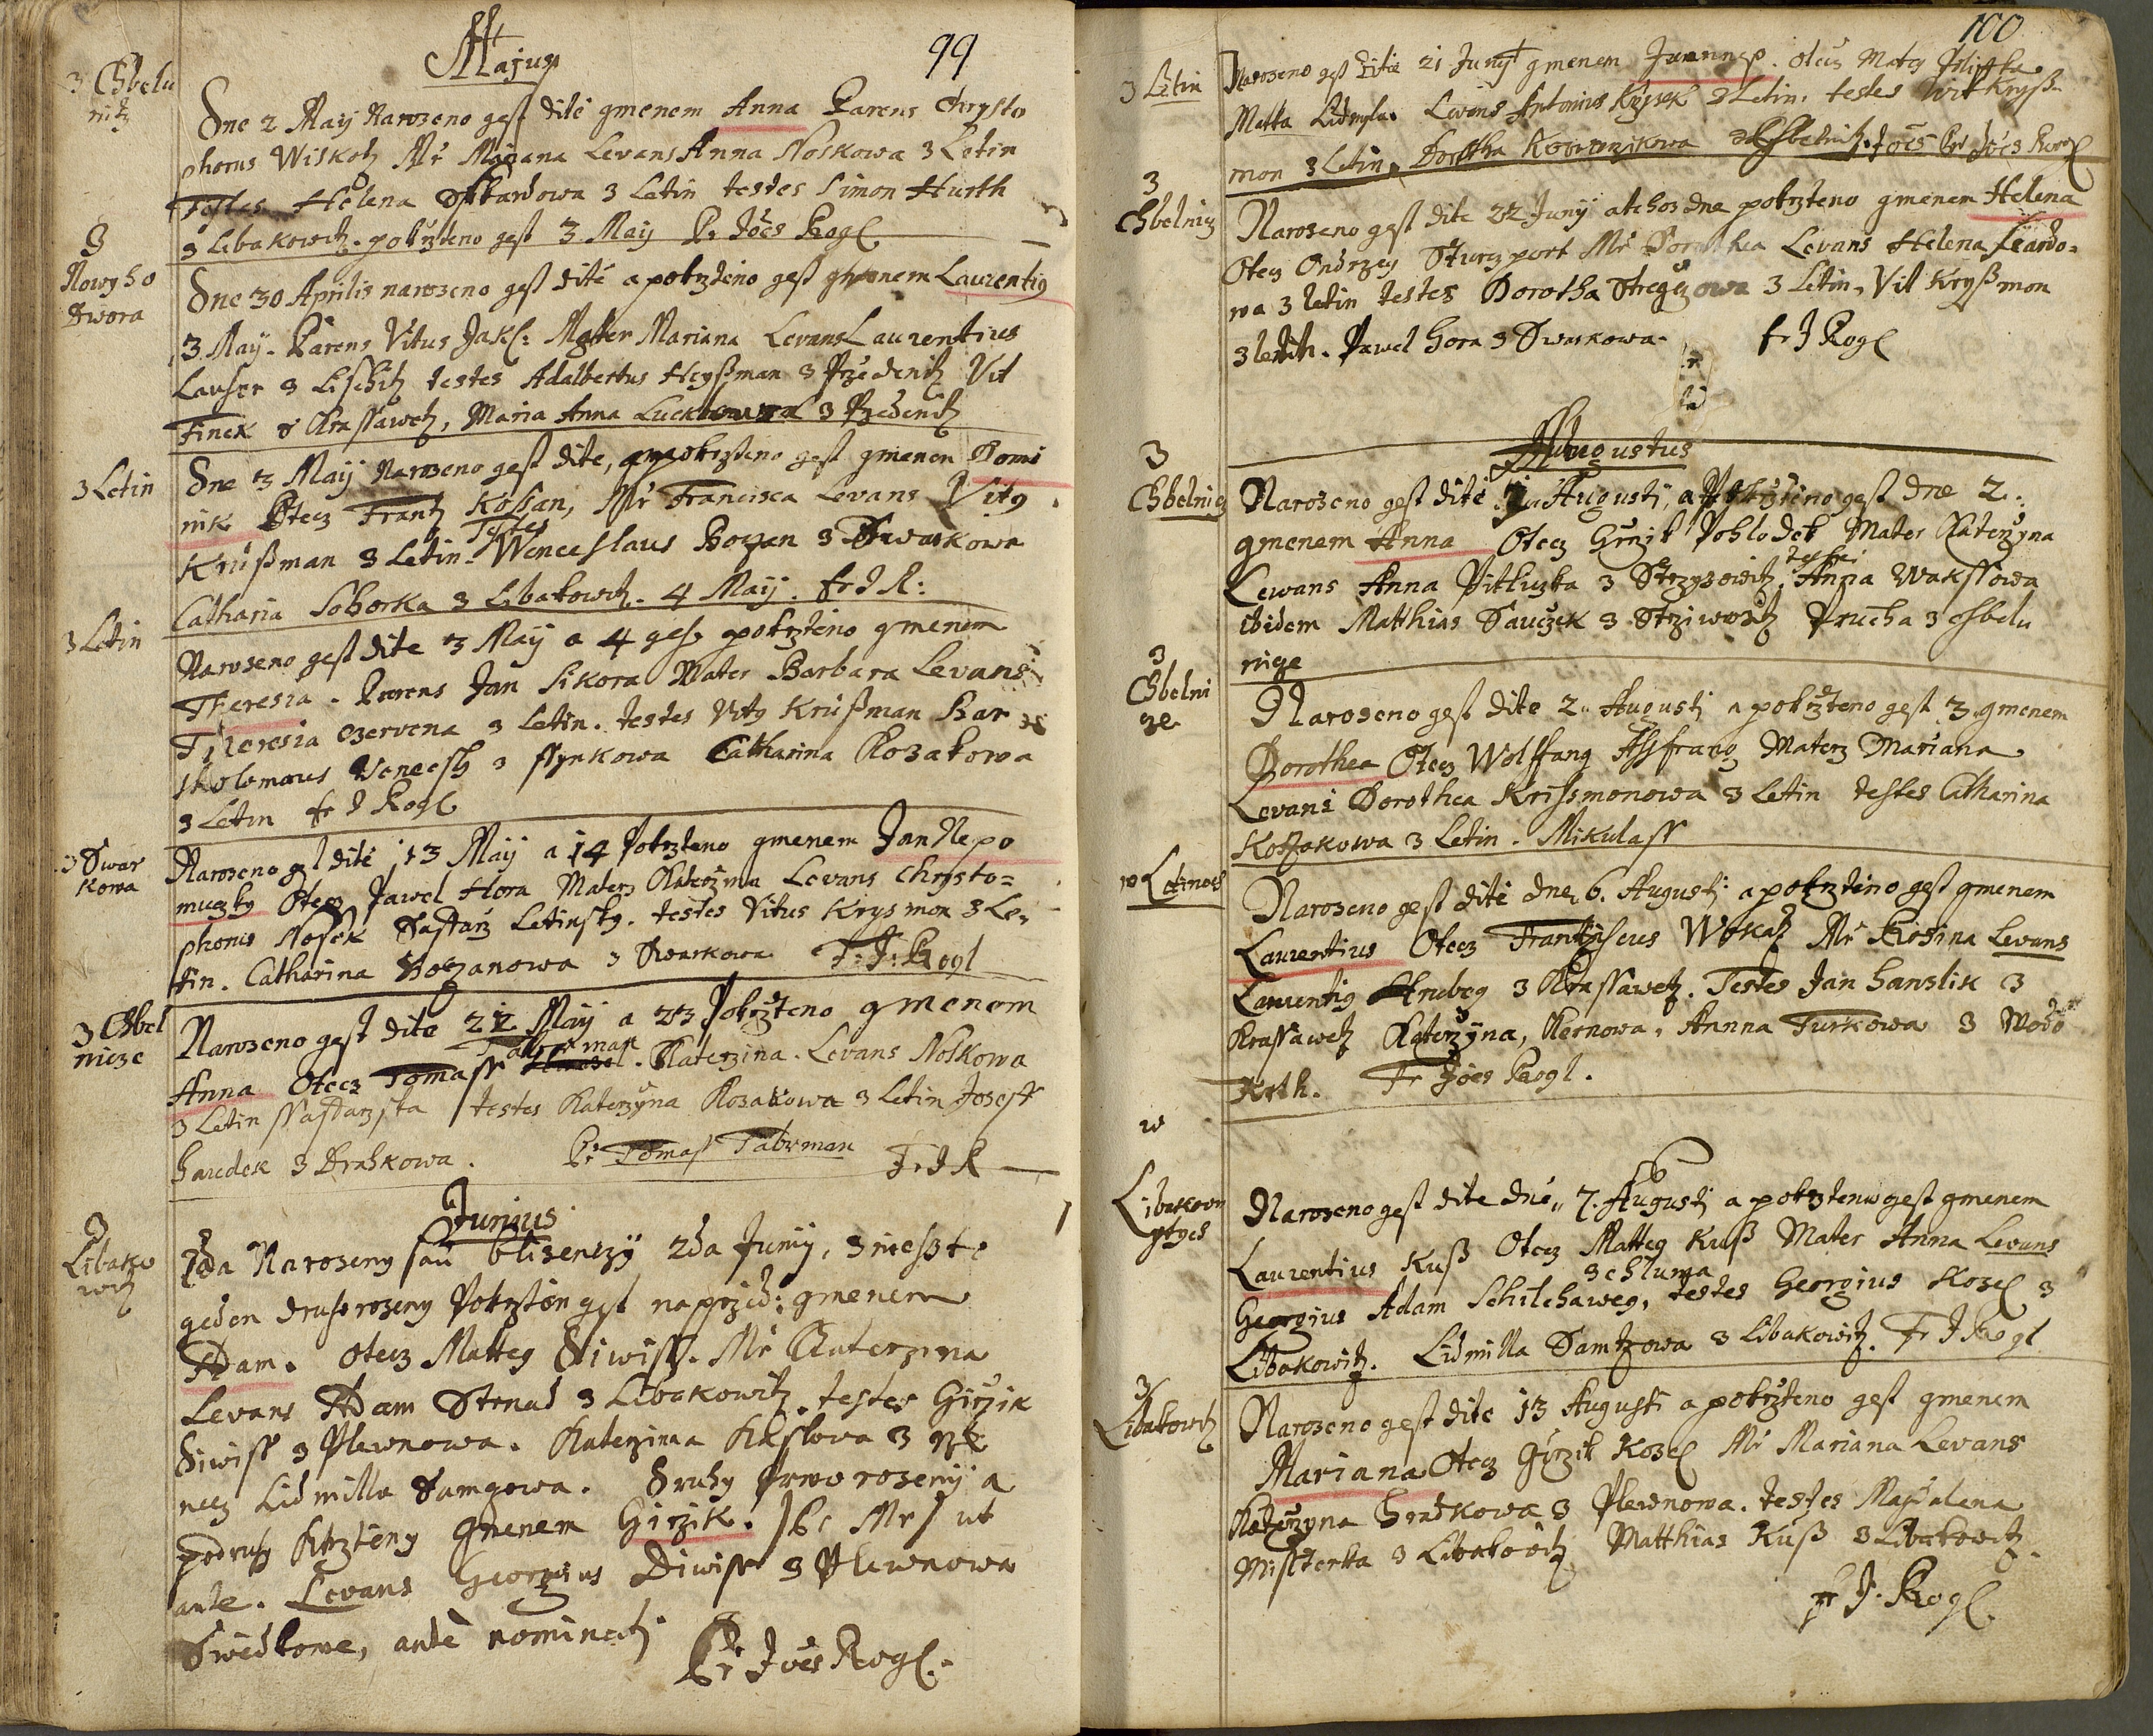 99
Majus
z Chbelu
nitz
Dne 2 Maij Narozeno gest dite gmenem Anna Parens Chrysto
phorus Wiskotz Mr Mariana Levans Anna Noskowa z Letin
Testes Helena z Letin testes Simon Hurth
z Libakowitz. pokrzteno gest 3 Maij Pr Joes Rogl
z
Nowyho
Dwora
Dne 30 Aprilis narozeno gest dité a pokrzteno gest gmenem Laurentig
3 May. Parens Vitus Jakl: Matter Mariana Levans Laurentius
Lauser z Lischitz testes Adalbertus Heyßman z Przedenitz Vit
Finek z Krassawetz, Maria Anna z Przedenitz
z Letin
Dne 3 Maij Narozeno gest dite, pokrzteno gest gmenem Domi
nik Otecz Frantz Kossan, Mr Francisca Levans Vitg
Krußman z Letin. Testes Wenceslaus Bozan z Dwarkowa
Catharia Soborka z Libakowitz. 4 Maij. fr J R:
z Letin
Narozeno gest dite 3 Maij a 4 gest pokrzteno gmenem
Theresia. Parens Jan Sikora Mater Barbara Levans
Theresia Czervena z Letin. testes Vitg Krußman Bar
tholomaus z Catharina Kozakowa
z Letin fr J Rogl
z Swar
kowa
Narozeno gest dité 13 Maij a 14 Pokrzteno gmenem Jan Nepo
muczky Otecz Pawel Hora Materz Katerzina Levans Chrysto=
phorus Nosek Letinsky. testes Vitus Krysmon z Le,
tin. Catharina Bozanowa z Swarkowa Fr: J: Rogl
z Chbel
nicze
Narozeno gest dite 22 Maij a 23 Pokrzteno gmenem
Anna Otecz Tomass Tauxman. Katerzina. Levans Noskowa
z Letin testes Katerzyna Kozakowa z Letin Joseff
Haudek z Drahkowa. Pr Tomaß Tabxman Fr J R
Junius
z
Libako
witz
2da Narozeny sau blizenczy 2da Junij, z nichzto
geden druhorozeny Pokrztén gest naprzed: gmenem
Adam. Otecz Matteg Diwiss. Mr Katerzina
Levans Adam Strnad z Libakowitz. testes Girzik
Diwiss z Plewnowa. Katerzina z
necz Lidmilla Samgowa. Druhy prworozený a
podruhy Krzténý gmenem Girzik. Pr Mr ut
ante. Levans Georgius Diwiss z Plewnowa
Swédkowe, ante nominati
Pr Joes Rogl.
100
z Letin
Narozeno gest dite 21 Junij gmenem Joannes. Otecz Mateg
Matka Lidmyla. Levans Antonius z Letin. testes Wit Kryß=
mon z Letin, Dorotha z Chbelnitz. Joes Rogl
z
Chbelnicz
Narozeno gest dite 22 Junij a tehoz dne pokrzteno gmenem Helena
Otecz Ondrzeg Sturgport Mr Dorothea Levans Helena
wa z letin testes Dorotha z Letin, Vit Kryßmon
z letin. Pawel Hora z Swarkowa. fr J Rogl
Augustus
z
Chbelnicz
Narozeno gest dité Augusti, a Pokrzteno gest dne 2.
gmenem Anna Otecz Girzik Pohlodek Mater Katerzyna
Lewans Anna z testes Anna Wakssowa
ibidem Matthias Sauczek z Strziwositz Prucha z Chbelu
nige
z
Chbelni
ze
Narozeno gest dite 2. Augusti a pokrzteno gest 3. gmenem
Dorothea Otecz Wolffang Materz Mariana
Levans Dorothea Krissmonowa z Letin testes Catharina
Kozakowa z Letin. Mikulass
w Letinech
Narozeno gest dité dne 6. Augusti a pokrzteno gest gmenem
Laurentius Otecz Frantziscus Wokatz Mr Rosina Levans
Laurentig Hrubeg z Krassawetz. Testes Jan Hanslik z
Krassawetz Katerzyna, Kernowa, Annna Turkowa z Wodo
krth. Fr Joes Rogl.
w
Libakow
gtzes
Narozeno gest dite dne 7. Augusti a pokrzteno gest gmenem
Laurentius Kuß Otecz Matteg Kuß Mater Anna Levans
Georgius Adam Schilchaweg, z Chluma testes Georgius Kozel z
Libakowitz. Lidmilla Samtzowa z Libakowitz. Fr J Rogl
z
Libakowitz
Narozeno gest dite 13 Augusti a pokrzteno gest gmenem
Mariana Otecz Girzik Kozel Mr Mariana Levans
Katerzyna Hradkowa z Plewnowa. testes Magdalena
Missterka z Libakowitz Matthias Kuß z Libakowitz.
Fr J. Rogl.